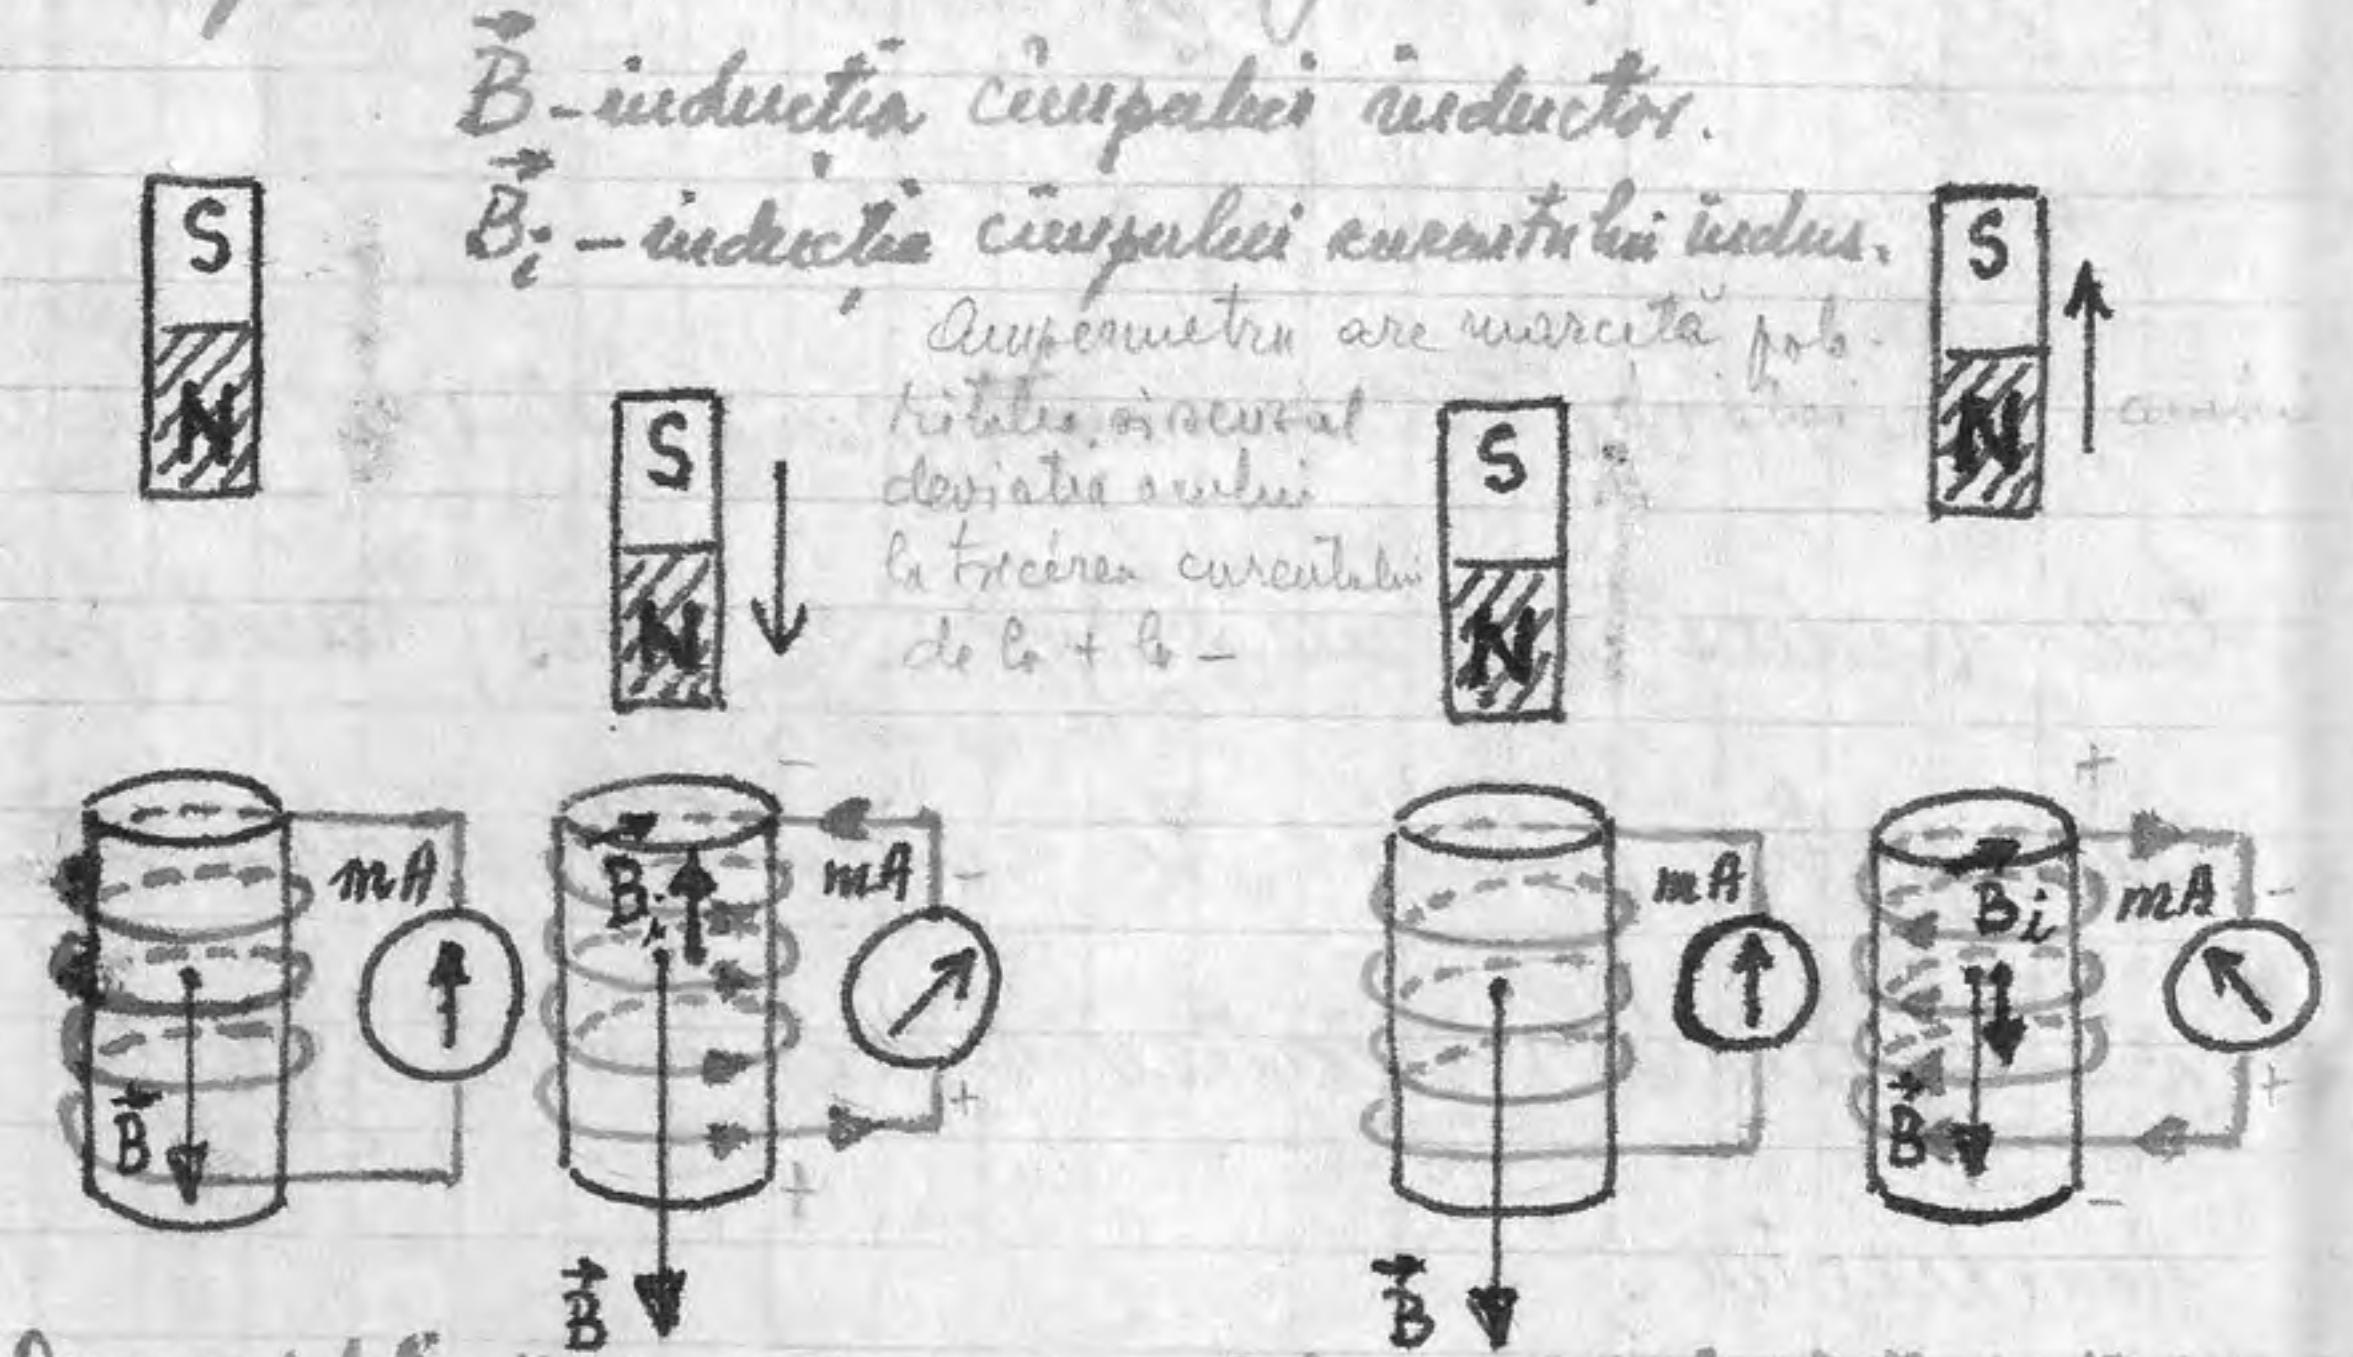 B⃗ - inducția cîmpului inductor.
B⃗i - inducția cîmpului curentului indus.
Ampermetru are marcată pola-
ritatea și sensul
deviația acului
la trecerea curentului
de la + la -
S
N
S
N
S
N
S
N
mA
B⃗
-
B⃗i
mA
-
+
+
B⃗
mA
B⃗
+
B⃗i
mA
-
+
B⃗
-